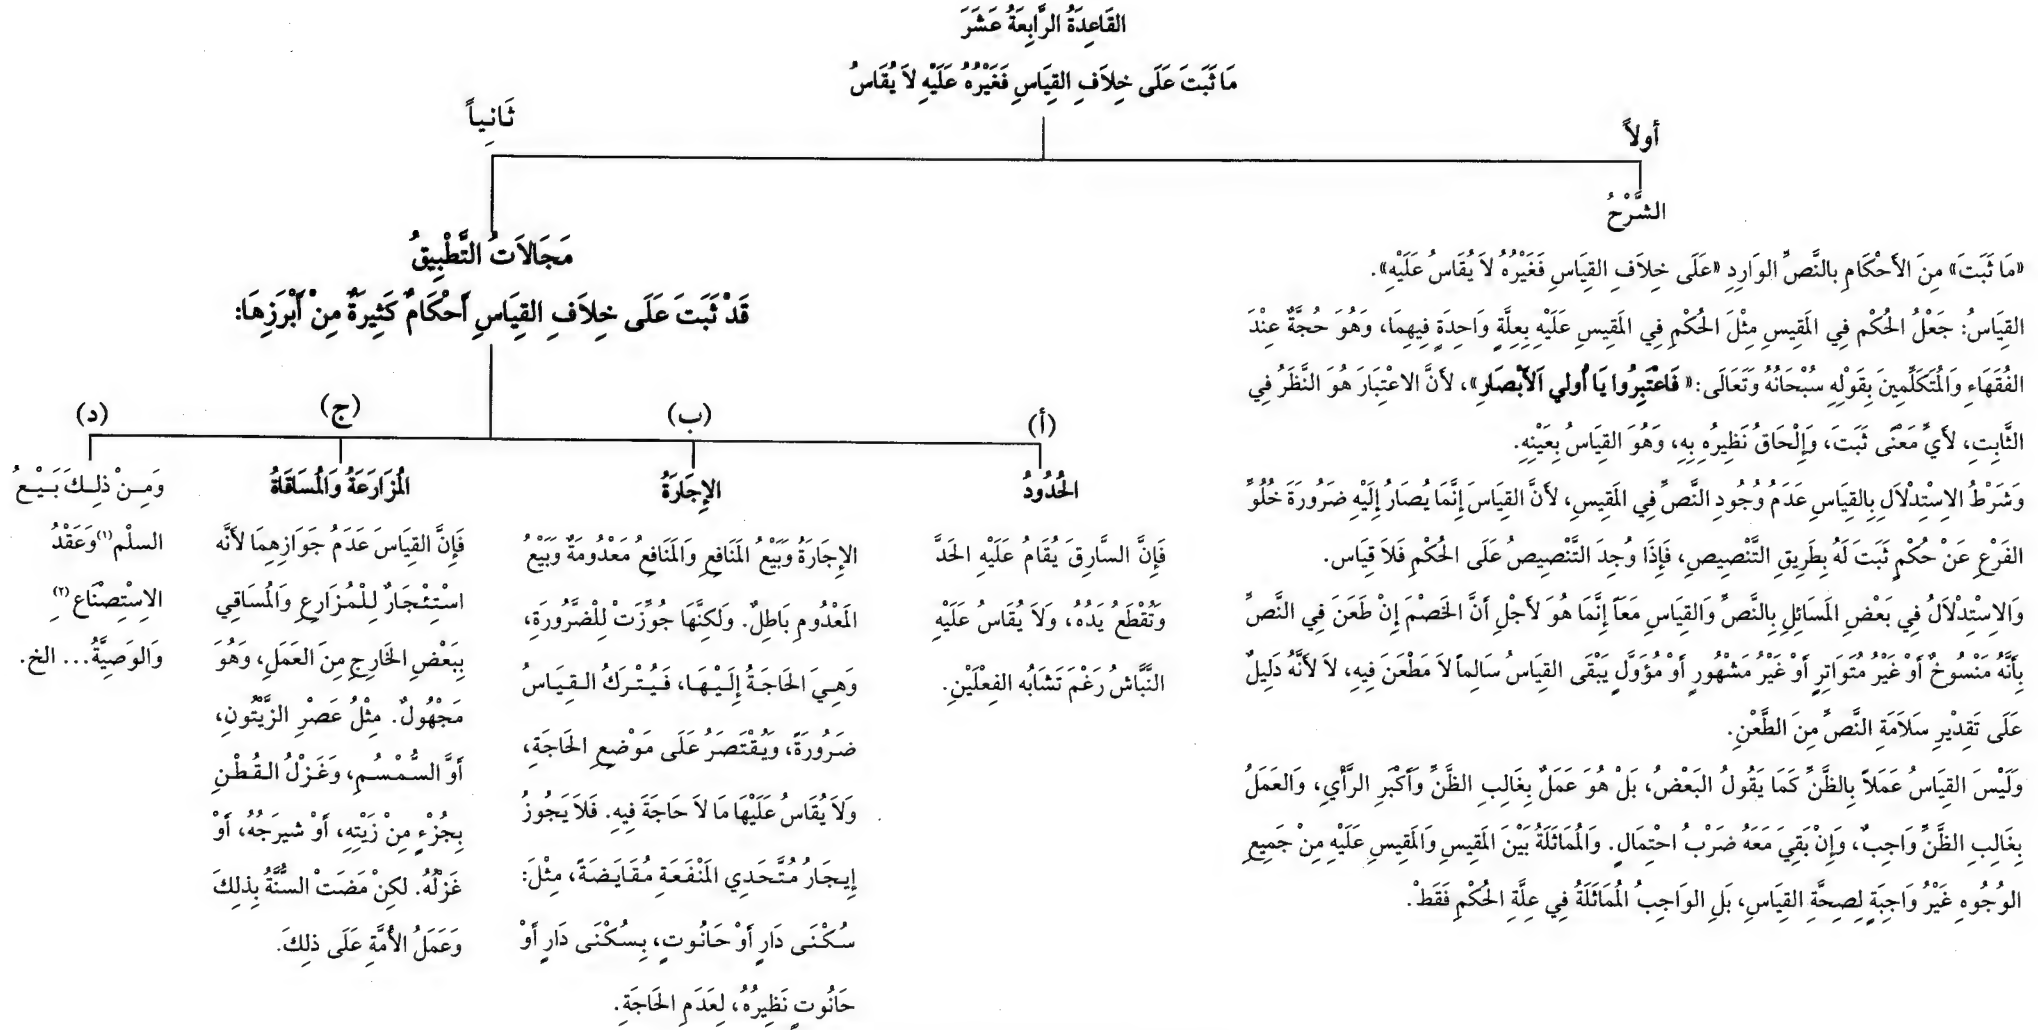 القَاعِدَةُ الرَّابِعَةُ عَشَرَ
مَا ثَبَتَ عَلَى خِلاَفِ القِيَاسِ فَغَيْرُهُ عَلَيْهِ لاَ يُقَاسُ
أولاً
الشَّرْحُ
«مَا ثَبَتَ» مِنَ الأَحْكَامِ بالنَّصِّ الوَارِدِ «عَلَى خِلاَفِ القِيَاسِ فَغَيْرُهُ لاَ يُقَاسُ عَلَيْهِ».
القِيَاسُ: جَعْلُ الحُكْم فِي المَقِيسِ مِثْلَ الحُكْمِ فِي المَقِيسِ عَلَيْهِ بِعِلَّةٍ وَاحِدَةٍ فِيهِمَا، وَهُوَ حُجَّةٌ عِنْدَ
الفُقَهَاءِ وَالمُتَكَلِّمِينَ بِقَوْلِهِ سُبْحَانُهُ وَتَعَالَى: «فَاعْتَبِرُوا يَا أُولي الأَبْصَارِ»، لأَنَّ الاعْتِبَارَ هُوَ النَّظَرُ فِي
الثَّابِتِ، لأَيِّ مَعْنًى ثَبَتَ، وَإِلْحَاقُ نَظِيرُه بِهِ، وَهُوَ القِيَاسُ بِعَيْنِهِ.
وَشَرْطُ الاِسْتِدْلاَلِ بِالقِيَاسِ عَدَمُ وُجُودِ النَّصِّ فِي المَقِيسِ، لأَنَّ القِيَاسَ إِنَّمَا يُصَارُ إِلَيْهِ ضَرُورَةَ خُلُوِّ
الفَرْعِ عَنْ حُكْمٍ ثَبَتَ لَهُ بِطَرِيقِ التَّنْصِيصِ، فَإِذَا وُجِدَ التَّنْصِيصُ عَلَى الحُكْمِ فَلاَ قِيَاس.
وَالاِسْتِدْلاَلُ فِي بَعْضِ المَسَائِلِ بِالنَّصِّ وَالقِيَاسِ مَعَاً إِنَّمَا هُوَ لأَجْلِ أَنَّ الخَصْمَ إِنْ طَعَنَ فِي النَّصِّ
بِأَنَّهُ مَنْسُوخٌ أَوْ غَيْرُ مُتَوَاتِرٍ أَوْ غَيْرُ مَشْهُورٍ أَوْ مُؤَوَّلٍ يَبْقَى القِيَاسُ سَالِماً لاَ مَطْعَنَ فِيهِ، لاَ لأَنَّهُ دَلِيلٌ
عَلَى تَقْدِيْرِ سَلاَمَةِ النَّصِّ مِنَ الطَّعْنِ.
وَلَيْسَ القِيَاسُ عَمَلاً بِالظَّنِّ كَمَا يَقُولُ البَعْضُ، بَلْ هُوَ عَمَلٌ بِغَالِبِ الظَّنِّ وَأَكْبَرِ الرَّأْيِ، وَالعَمَلُ
بِغَالِبِ الظَّنِّ وَاجِبٌ، وَإِنْ بَقِيَ مَعَهُ ضَرْبُ احْتِمَالٍ. وَالمُمَاثَلَةُ بَيْنَ المَقِيسِ وَالمَقِيسِ عَلَيْهِ مِنْ جَمِيعِ
الوُجُوهِ غَيْرُ وَاجِبَةٍ لِصِحَّةِ القِيَاسِ، بَلِ الوَاجِبُ المُمَاثَلَةُ فِي عِلَّةِ الحُكْمِ فَقَطْ.
ثَانِياً
مَجَالاَتُ التَّطْبِيقُ
قَدْ ثَبَتَ عَلَى خِلاَفِ القِيَاسِ أَحْكَامٌ كَثِيرَةٌ مِنْ أَبْرَزِهَا:
(أ)
الحُدُودُ
فَإِنَّ السَّارِقَ يُقَامُ عَلَيْهِ الحَدَّ
وَتُقْطَعُ يَدُهُ، وَلاَ يُقَاسُ عَلَيْهِ
النَّبَّاشُ رَغْمَ تَشَابُه الفِعْلَيْنِ.
(ب)
الإِجَارَةُ
الإِجَارَةُ وَبَيْعُ المَنَافِعِ وَالمَنَافِعُ مَعْدُومَةٌ وَبَيْعُ
المَعْدُومِ بَاطِلٌ. وَلَكِنَّهَا جُوِّزَتْ لِلْضَّرُورَةِ،
وَهِيَ الحَاجَةُ إِلَيْهَا، فَيُتْرَكُ القِيَاسُ
ضَرُورَةً، وَيُقْتَصَرُ عَلَى مَوْضِعِ الحَاجَةِ،
وَلاَ يُقَاسُ عَلَيْهَا مَا لاَ حَاجَةَ فِيهِ. فَلاَ يَجُوزُ
إِيجَارُ مُتَّحَدِي المَنْفَعَةِ مُقَايَضَةً، مِثْلَ:
سُكْنَى دَارٍ أَوْ حَانُوت، بِسُكْنَى دَارٍ أَوْ
حَانُوتٍ نَظِيرُهُ، لِعَدَمِ الحَاجَةِ.
(ج)
المُزَارَعَةُ وَالمُسَاقَاةُ
فَإِنَّ القِيَاسَ عَدَمُ جَوَازِهِمَا لأَنَّه
اسْتِئْجَارٌ لِلْمُزَارِعِ وَالمُسَاقِي
بِبَعْضِ الخَارِجِ مِنَ العَمَلِ، وَهُوَ
مَجْهُولٌ. مِثْلُ عَصْرِ الزَّيْتُونِ،
أَوَّ السُّمْسُمِ، وَغَزْلُ القُطْنِ
بِجُزْءٍ مِنْ زَيْتِهِ، أَوْ شيرَجُهُ، أَوْ
غَزْلُهُ. لكِنْ مَضَتْ السُّنَّةُ بِذلِكَ
وَعَمَلُ الأُمَّةِ عَلَى ذلِكَ.
(د)
وَمِنْ ذلِكَ بَيْعُ
السلْم(١) وَعَقْدُ
الاِسْتِصْنَاعِ(٢)
وَالوَصِيَّةُ... الخ.